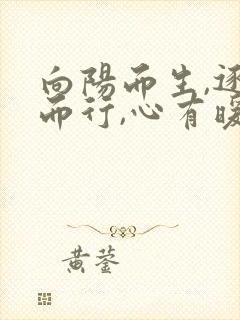 向陽而生,逐
而行,心有暖
黄蓥